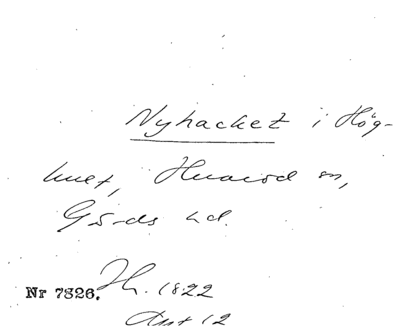 Nyhacket i Hög-
hult, Huaröd sn,
Gärds hd.
Nr 7826. Th. 1822
Akt 12